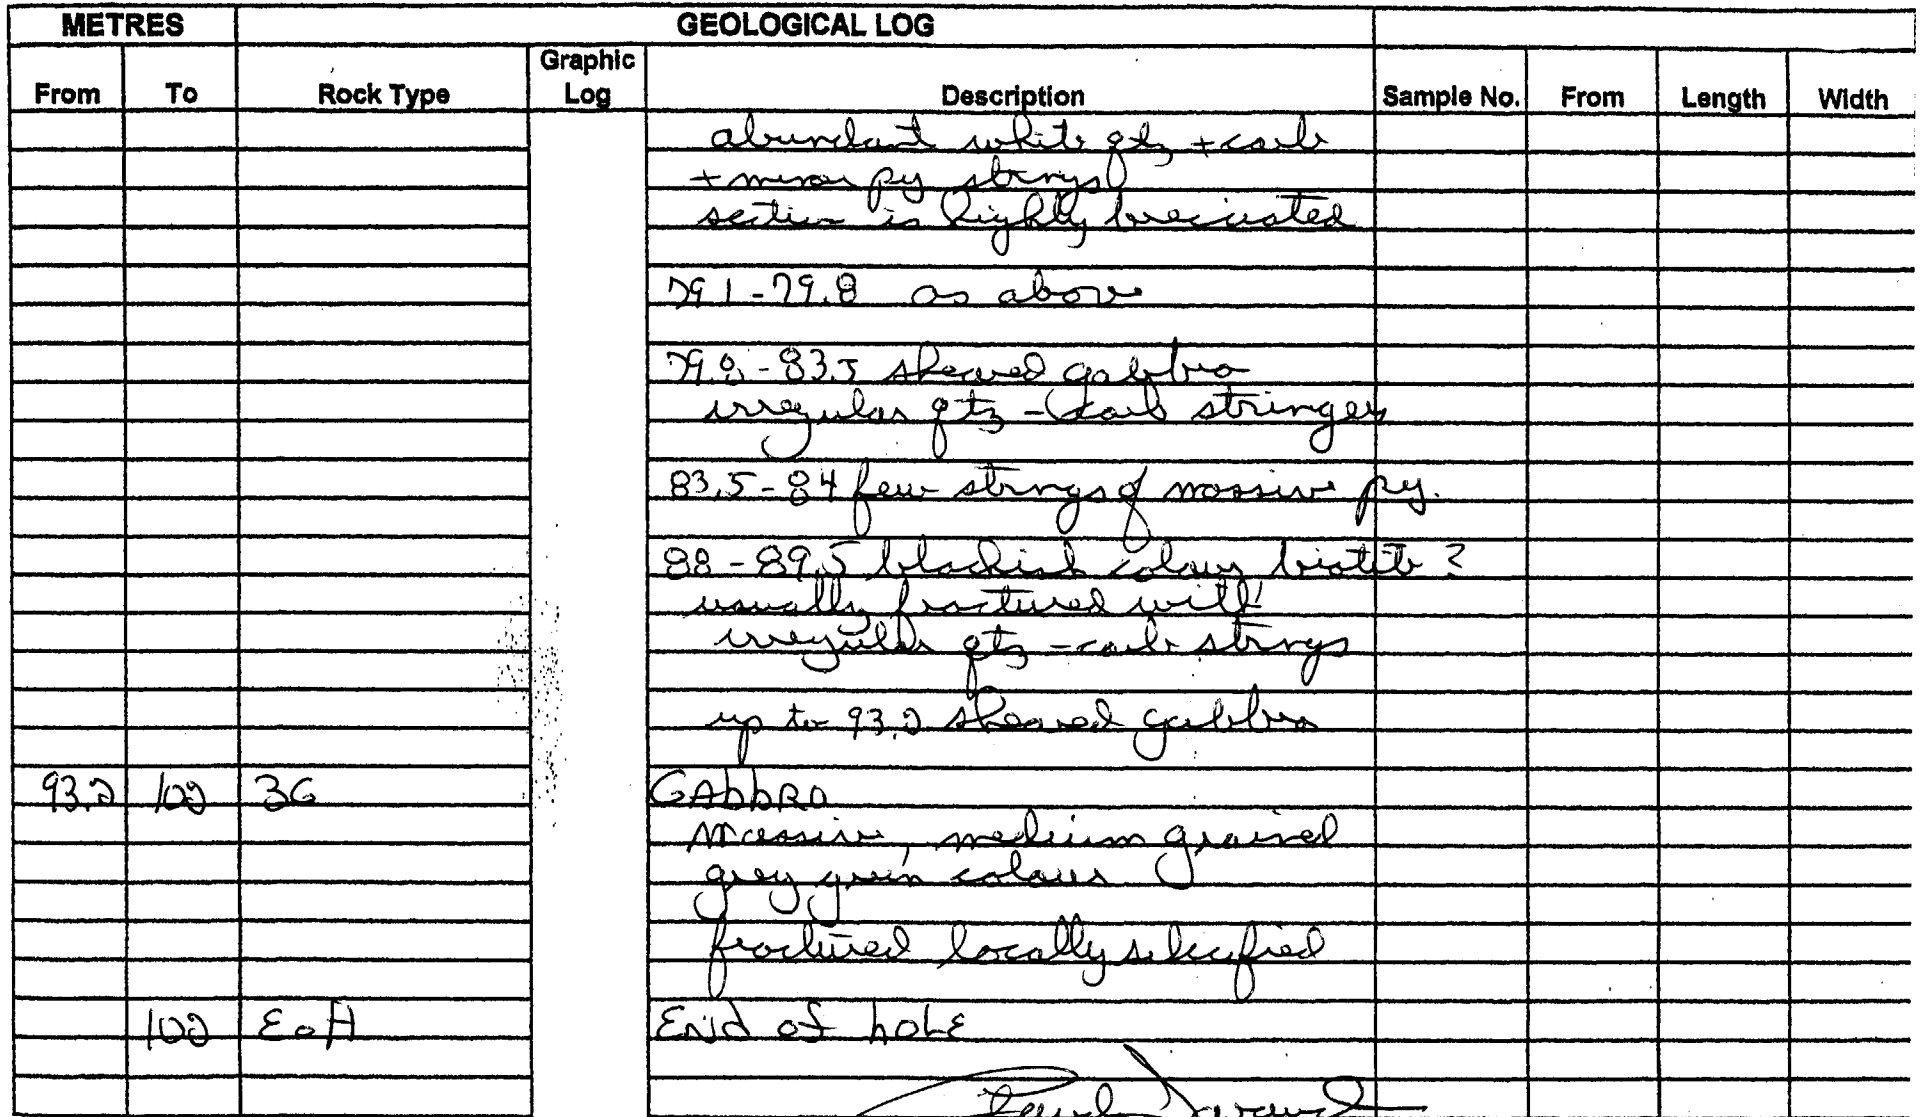 METRES GEOLOGICAL LOG
From To Rock Type Graphic Log Description Sample No. From Length Width
abundant white qtz + carb
+ minor py strngs
section is highly brecciated
79.1 - 79.8 as above
79.8 - 83.5 sheared gabbro
irregular qtz - carb stringer
83.5 - 84 few strngs of massive py.
88 - 89.5 blackish colour biotite ?
usually fractured with
irregular qtz - carb strngs
up to 93.2 sheared gabbro
93.2 102 3G GAbbRO
Massive, medium grained
grey green colour
fractured locally silicified
102 EOH End of hole